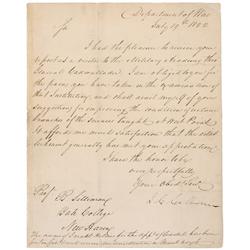 Department of War
July 19th 1822
Sir
I had the pleasure to receive your
report as a visitor to the Military Academy this
General Examination. I am obliged to you for
the pains you have taken in the examination of
that Institution, and shall avail myself of your
Suggestions for improving the condition of certain
branches of the Science taught at West Point.
It affords me much Satisfaction that the establishment
generally has met your approbation.
I have the honor to be
very respectfully
Your Obedt Servt
J. C. Calhoun
Prof B. Silliman
Yale College
New Haven